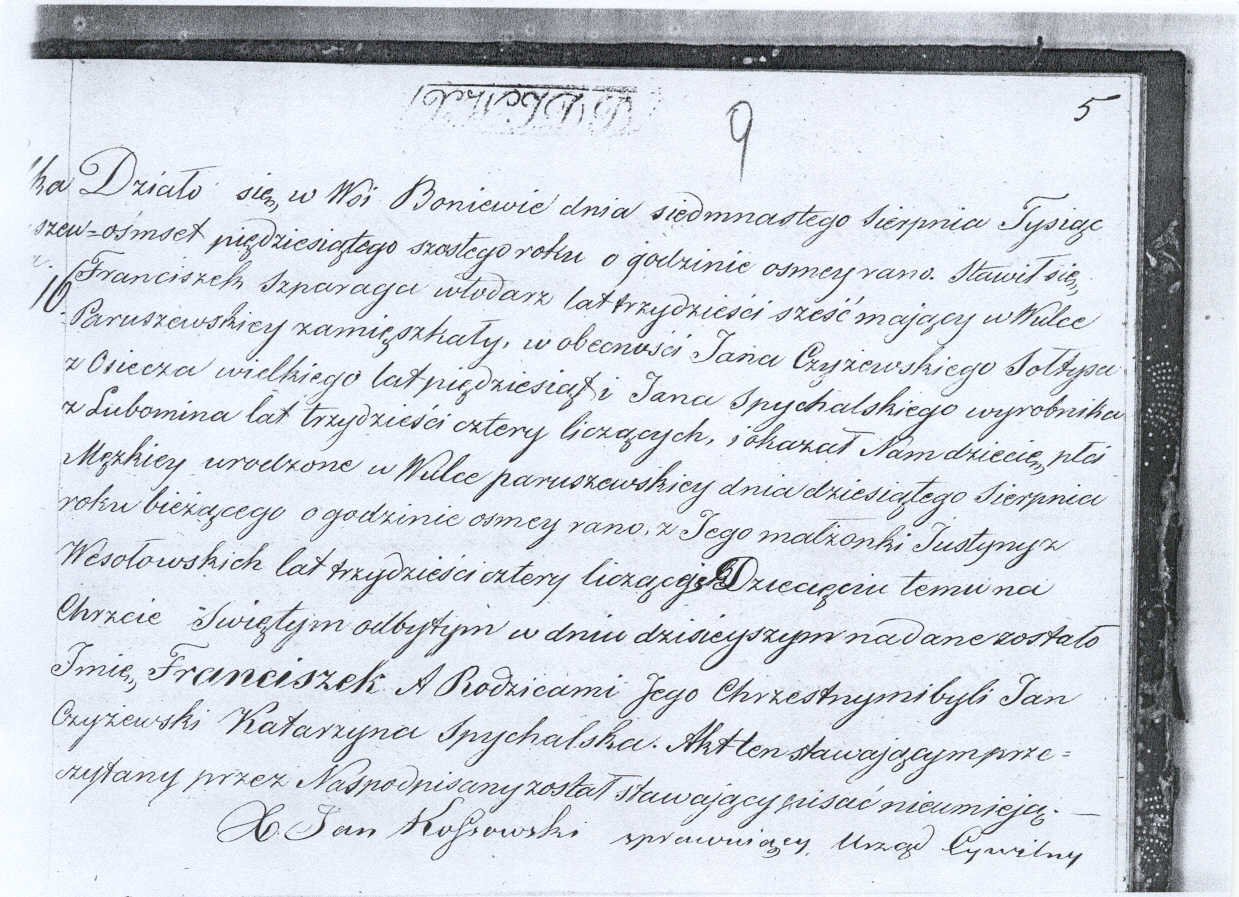 9
5
ka Działo się, w Wsi Boniewie dnia siedmnastego Sierpnia Tysiąc
szew=ośmset pięcdziesiątego szostego roku o godzinie osmey rano. Stawił się,
16. Franciszek Szparaga włodarz lat trzydzieści sześć mający w Wulce
Paruszewskiey zamięszkały, w obecności Jana Czyżewskiego Sołtysa
z Osiecza wielkiego lat pięcdziesiąt, i Jana Spychalskiego wyrobnika
z Lubomina lat trzydzieści cztery liczących, i okazał Nam dziecie, płci
Męzkiey urodzone w Wulce paruszewskiey dnia dziesiątego Sierpnia
roku bieżącego o godzinie osmey rano, z Jego małżonki Justyny z
Wesołowskich lat trzydzieści cztery liczącej Dziecięciu temu na
Chrzcie Swiętym odbytym w dniu dzisieyszym nadane zostało
Imie, Franciszek A Rodzicami Jego Chrzestnymi byli Jan
Czyżewski Katarzyna Spychalska. Akt ten stawającym prze=
czytany przez Nas podpisany został stawający pisać nieumieją. —
X. Jan Kossowski sprawuiący Urząd Cywilny